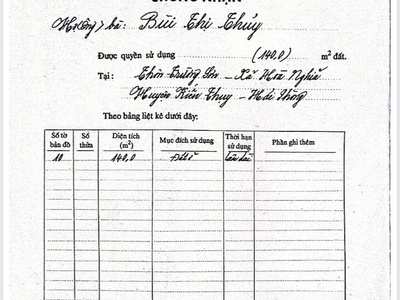 CHỨNG NHẬN
Hộ (ông) bà: Bùi Thị Thủy
Được quyền sử dụng (140,0) m² đất.
Tại: Thôn Trường Sơn - Xã Hoà Nghĩa
Huyện Kiến Thụy - Hải Phòng
Theo bảng liệt kê dưới đây:
Số tờ bản đồ Số thửa Diện tích (m²) Mục đích sử dụng Thời hạn sử dụng Phần ghi thêm
10 140,0 Đất ở lâu dài